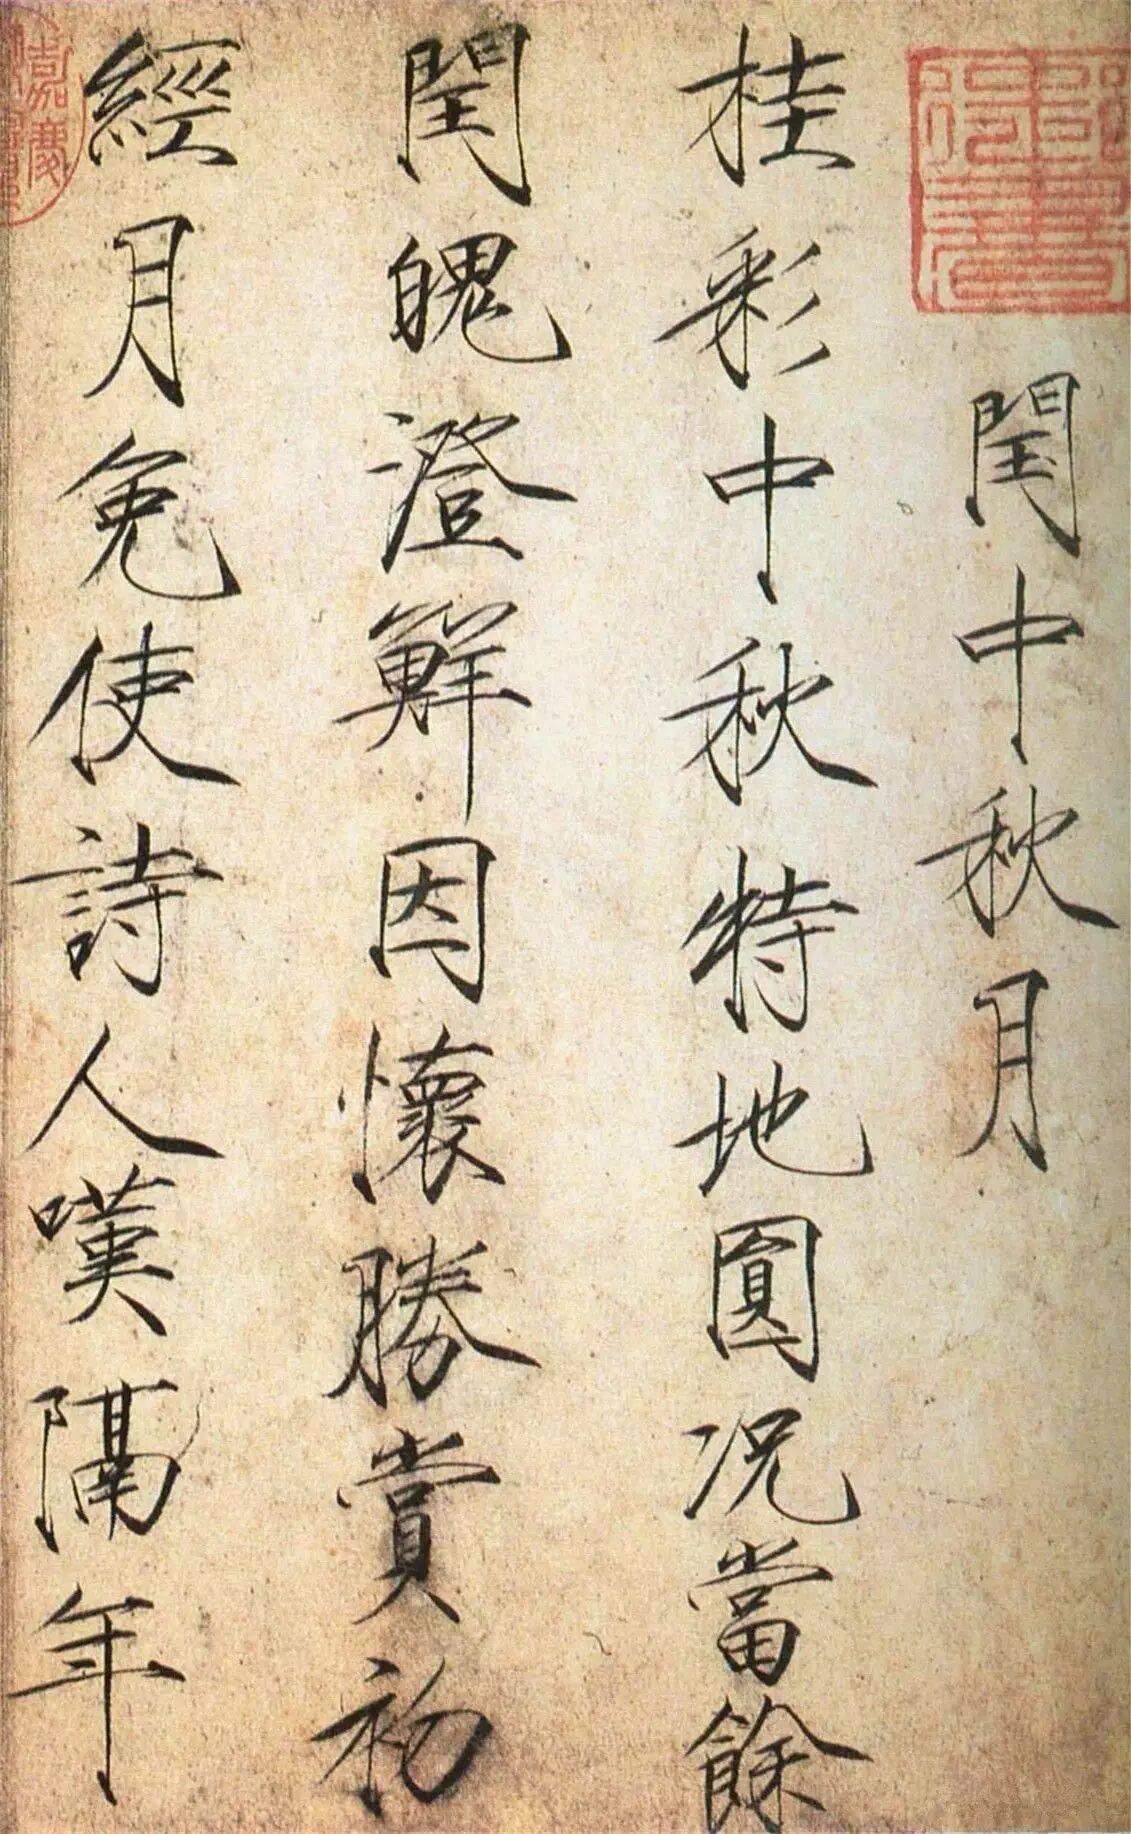 閏中秋月
桂彩中秋特地圓況當餘
閏魄澄鮮因懷勝賞初
經月免使詩人嘆隔年
嘉慶